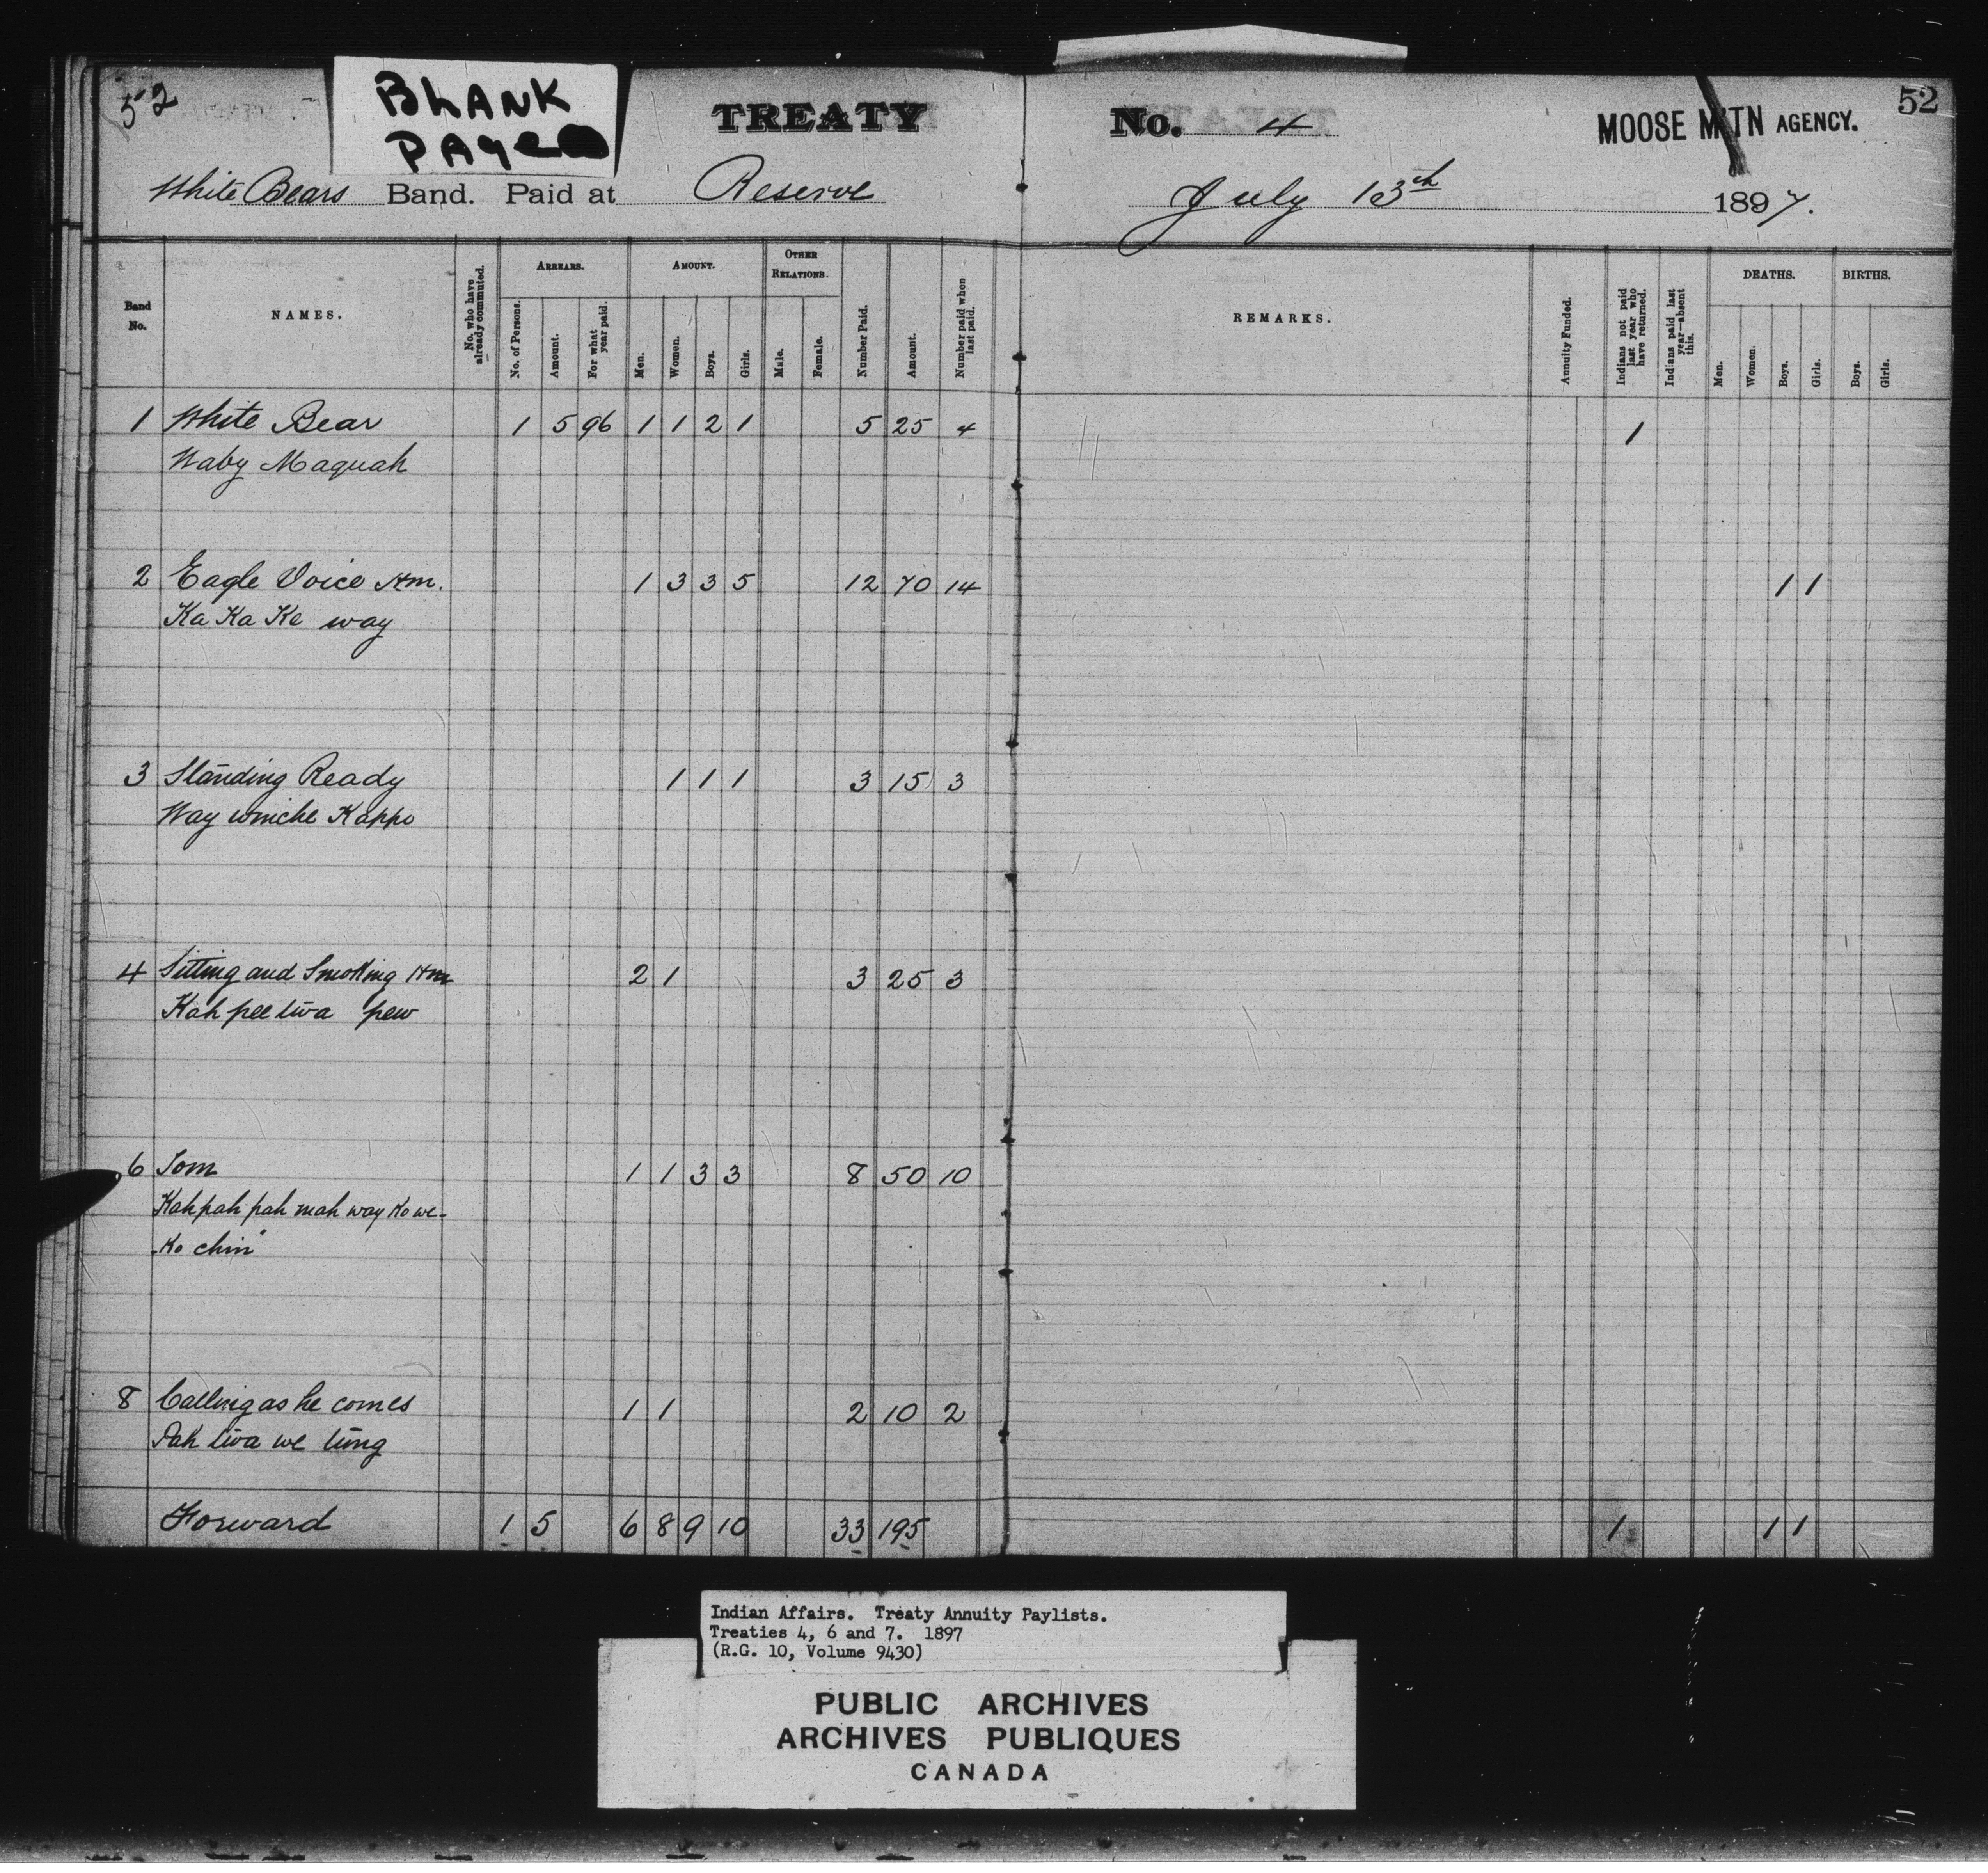 52
BLANK
PAGE
TREATY No. 4
MOOSE MTN AGENCY.
52
White Bears Band. Paid at Reserve July 13th 1897.
Band No.
NAMES.
No. who have already commuted.
ARREARS.
No. of Persons.
Amount.
For what year paid.
AMOUNT.
Men.
Women.
Boys.
Girls.
OTHER RELATIONS.
Male.
Female.
Number Paid.
Amount.
Number paid when last paid.
REMARKS.
Annuity Funded.
Indians not paid last year who have returned.
Indians paid last year—absent this.
DEATHS.
Men.
Women.
Boys.
Girls.
BIRTHS.
Boys.
Girls.
1 White Bear 1 5 96 1 1 2 1 5 25 4 1
Waby Maquah
2 Eagle Voice Hm. 1 3 3 5 12 70 14 1 1
Ka Ka Ke way
3 Standing Ready 1 1 1 3 15 3
Way winche Kappo
4 Sitting and Smoking Hm 2 1 3 25 3
Kah pee twa pew
6 Tom 1 1 3 3 8 50 10
Kah pah pah mah way Ko we-
Ko chin"
8 Calling as he comes 1 1 2 10 2
Pah twa we tung
Forward 1 5 6 8 9 10 33 195 1 1 1
Indian Affairs. Treaty Annuity Paylists.
Treaties 4, 6 and 7. 1897
(R.G. 10, Volume 9430)
PUBLIC ARCHIVES
ARCHIVES PUBLIQUES
CANADA